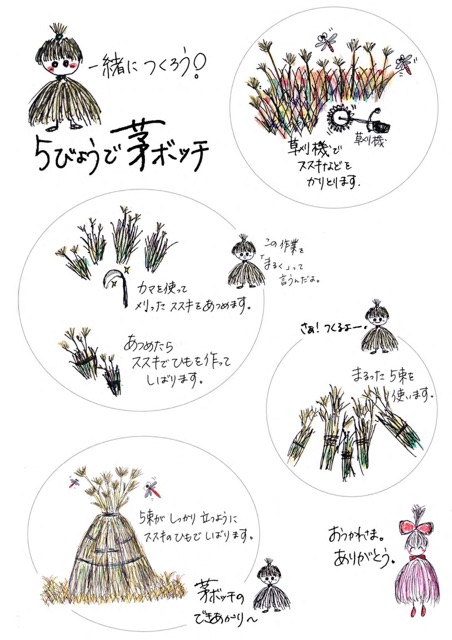 一緒につくろう!
5びょうで茅ボッチ
草刈機
草刈機で
ススキなどを
かりとります.
カマを使って
刈った ススキをあつめます。
この作業を
「まるく」って
言うんだよ。
あつめたら
ススキでひもを作って
しばります。
さぁ!つくるよー。
まるった 5束を
使います。
5束が しっかり 立つように
ススキのひもで しばります。
茅ボッチの
できあがり〜
おつかれさま。
ありがとう。